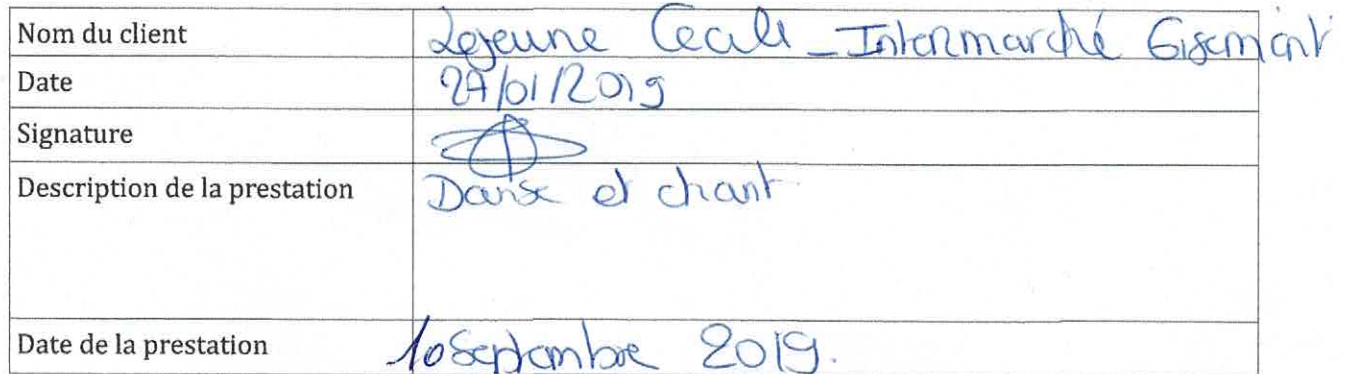 Nom du client Lejeune Cecile - Intermarché Gisement
Date 27/01/2019
Signature
Description de la prestation Danse et chant
Date de la prestation 10 Septembre 2019.